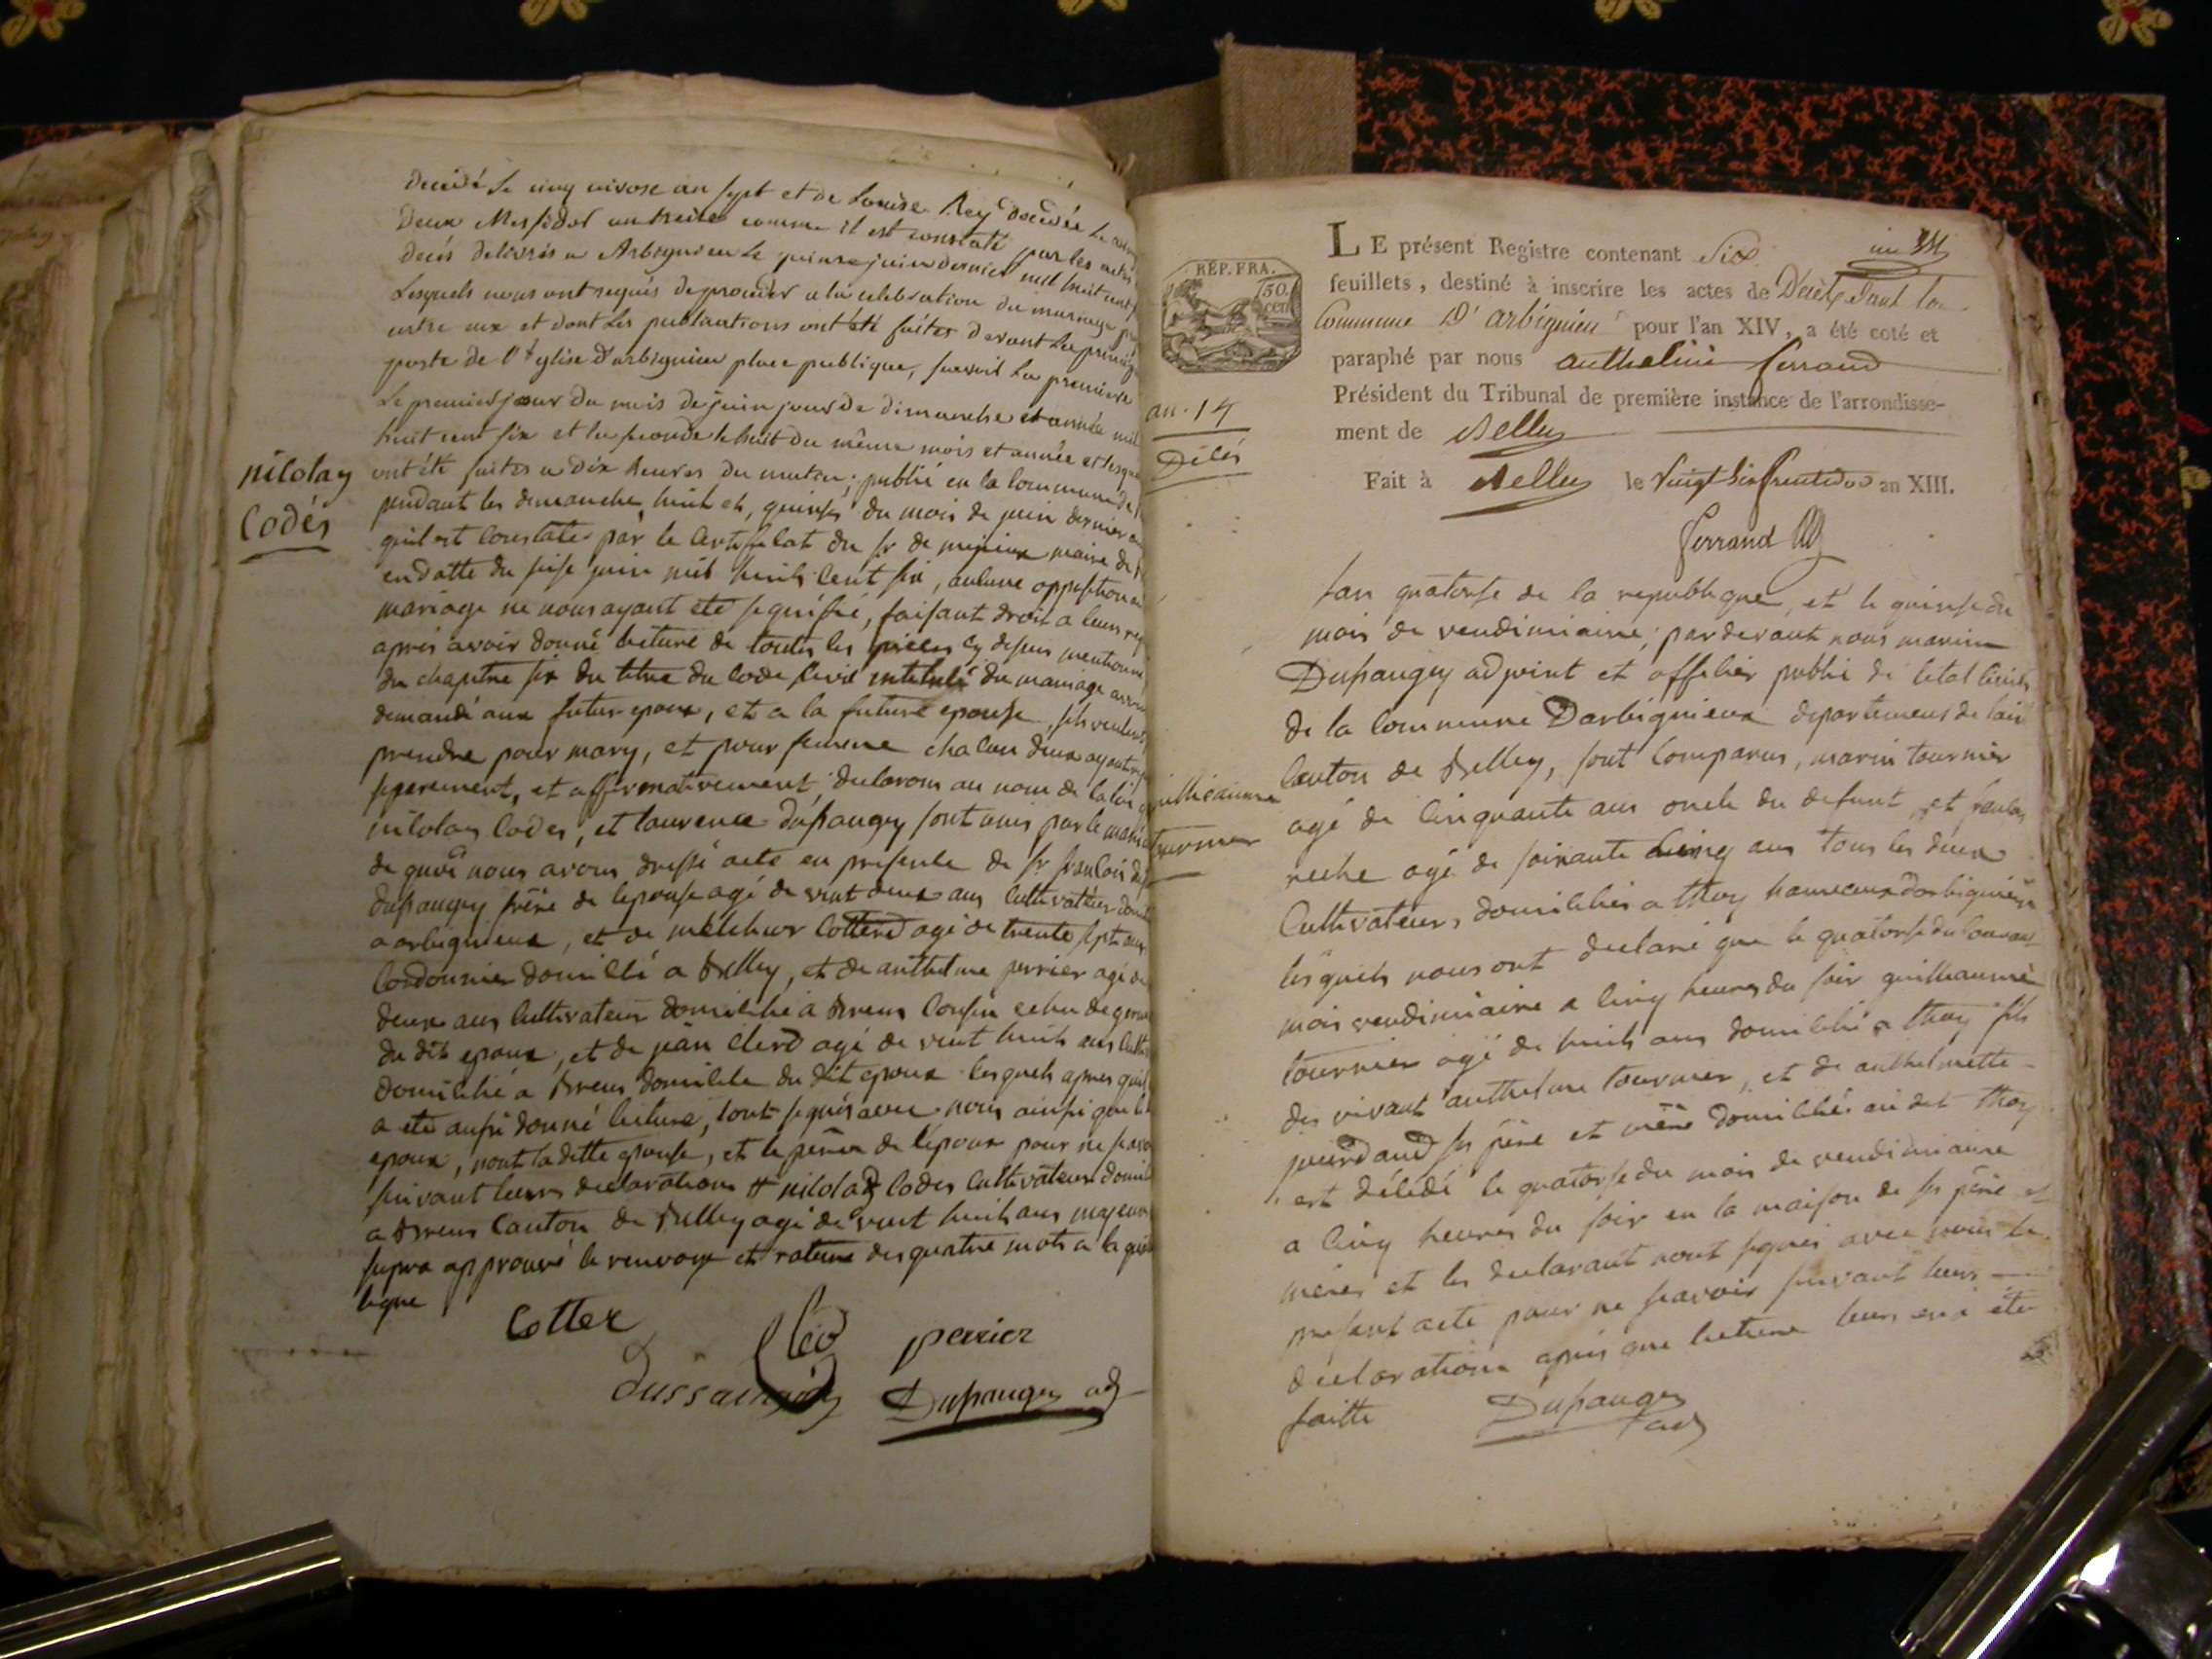 décédé le cinq nivose an sept et de Louise Rey décédée le
deux Messidor an treize comme il est constaté par les actes
décés délivrés a Arbignieu le quinze juin dernier mil huit cent
Lesquels nous ont requis de proceder a la celebration du mariage
entre eux et dont les publications ont été faites devant la
porte de l'Eglise d'arbignieu place publique, scavoir la premiere
le premier jour du mois de juin jour de dimanche et année mil
huit cent six et la seconde le huit du même mois et année
nilolay
Codés
ont été faites a dix heures du matin; publié en la Commune de
pendant les dimanche huit et, quinse du mois de juin dernier
quil est Constaté par le Certificat du sr de maire de
en datte du seise juin mil huit Cent six, aulune opposition au
mariage ne nous ayant été signifié, faisant droit a leur
aprés avoir donné lecture de toutes les pieces cy desus mentionné
du chapitre six du titre du Code Civil intitulé du mariage avons
demandé aux futur epoux, et a la future epouse, sils veulent
prendre pour mary, et pour femme chalun deux ayant
separement, et affirmativement, declarons au nom de la loi
nilolas Codes, et laurence dusaugey sont unis par le
de quoi nous avons dressé acte en presente de sr
dusaugey frere de lepouse agé de vint deux ans Cultivateur
a arbignieux, et de melchior Cotterd agé de trente sept ans
Cordonnier domilié a Belley, et de anthelme perrier agé de
deux ans Cultivateur domicilié a Brens Cousin
du dit epoux, et de jean Clerd agé de vint huit ans
domicilié a Brens domicile du dit epoux lesquels apres quil
a eté aussi donné lecture, sont signés avec nous ainsi que
epoux, nont la ditte epouse, et le de lepoux pour ne
suivant leurs declarations # nilolas Codes Cultivateur
a Brens Canton de Belley agé de vint huit ans
supra approuvé le renvoy et rature des quatre mots a la
ligne
Cotter
Cled
perrier
dussaugey
Dusaugey adj
LE présent Registre contenant Six
feuillets, destiné à inscrire les actes de Décès dans la
Commune D' arbignieu pour l'an XIV, a été coté et
paraphé par nous anthelme ferrand
Président du Tribunal de première instance de l'arrondisse-
ment de Belley
Fait à Belley le Vingt six fructidor an XIII.
ferrand
RÉP. FRA.
50.
cen
an. 14
Décés
guilleaume
tournier
lan quatorse de la republique, et le quinse du
mois de vendimiaire, pardevant nous marin
Dusaugey adjoint et offelier public de letat livil
de la lommune Darbignieux departement de lain
Canton de Belley, sont Comparus, marin tournier
agé de Cinquante ans oncle du defunt, et
reche agé de soixante Cinq ans tous les deux
Cultivateurs, domiciliés a thoy hameaux darbignieux
lesquels nous ont declaré que le quatorse du Courant
mois vendimiaire a Cinq heures du soir guilleaume
tournier agé de huit ans domicilié a thoy fils
des vivant anthelme tournier, et de anthelmette
ses père et mère domiciliés au dit thoy
est délédé le quatorse du mois de vendimiaire
a Cinq heures du soir en la maison de ses père et
mères et les declarant nont signés avec nous le
present acte pour ne scavoir suivant leurs
declarations après que lecture leurs en a été
faitte
Dusaugey
adj